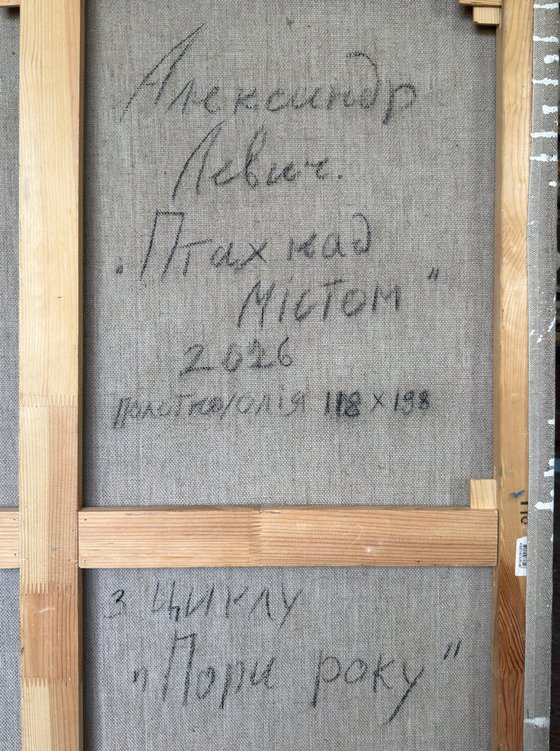 Александр
Левич.
"Птах над
містом"
2026
полотно/олія 118×198
з циклу
"Пори року"